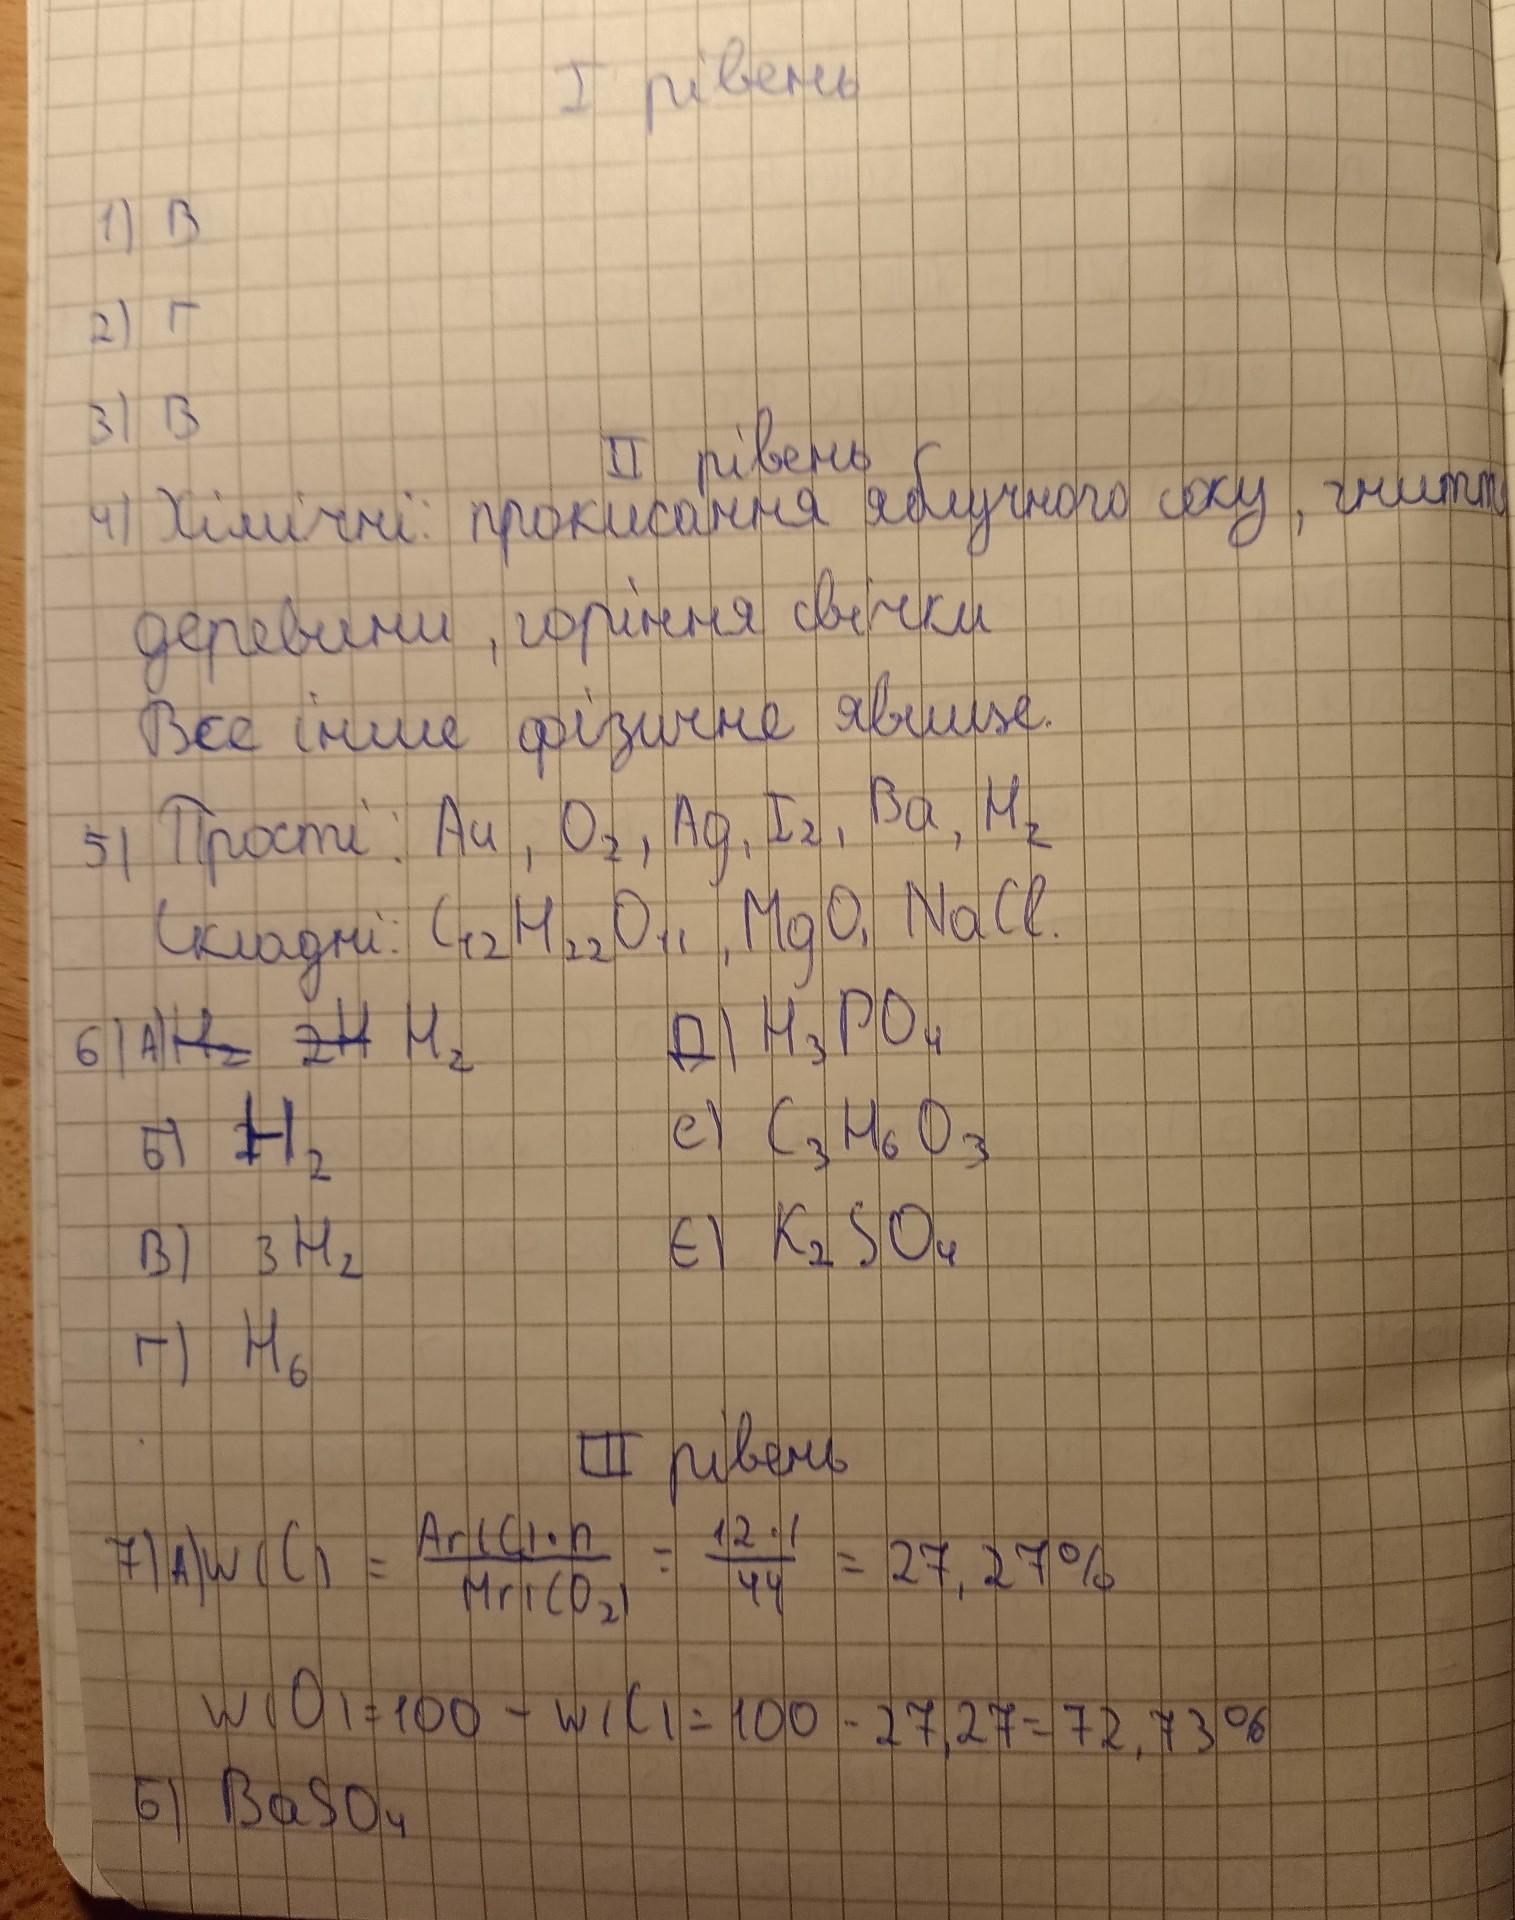 I рівень
1) В
2) Г
3) В
II рівень
4) Хімічні: прокисання яблучного соку, гниття
деревини, горіння свічки
Все інше фізичне явище.
5) Прості: Au, O₂, Ag, I₂, Ba, H₂
Складні: C₁₂H₂₂O₁₁, MgO, NaCl.
6) А) H₂ 2H H₂ Д) H₃PO₄
Б) H₂ е) C₃H₆O₃
В) 3H₂ Є) K₂SO₄
Г) H₆
III рівень
7) А) w(C) = Ar(C)·n / Mr(CO₂) = 12·1 / 44 = 27,27%
w(O) = 100 - w(C) = 100 - 27,27 = 72,73%
Б) BaSO₄